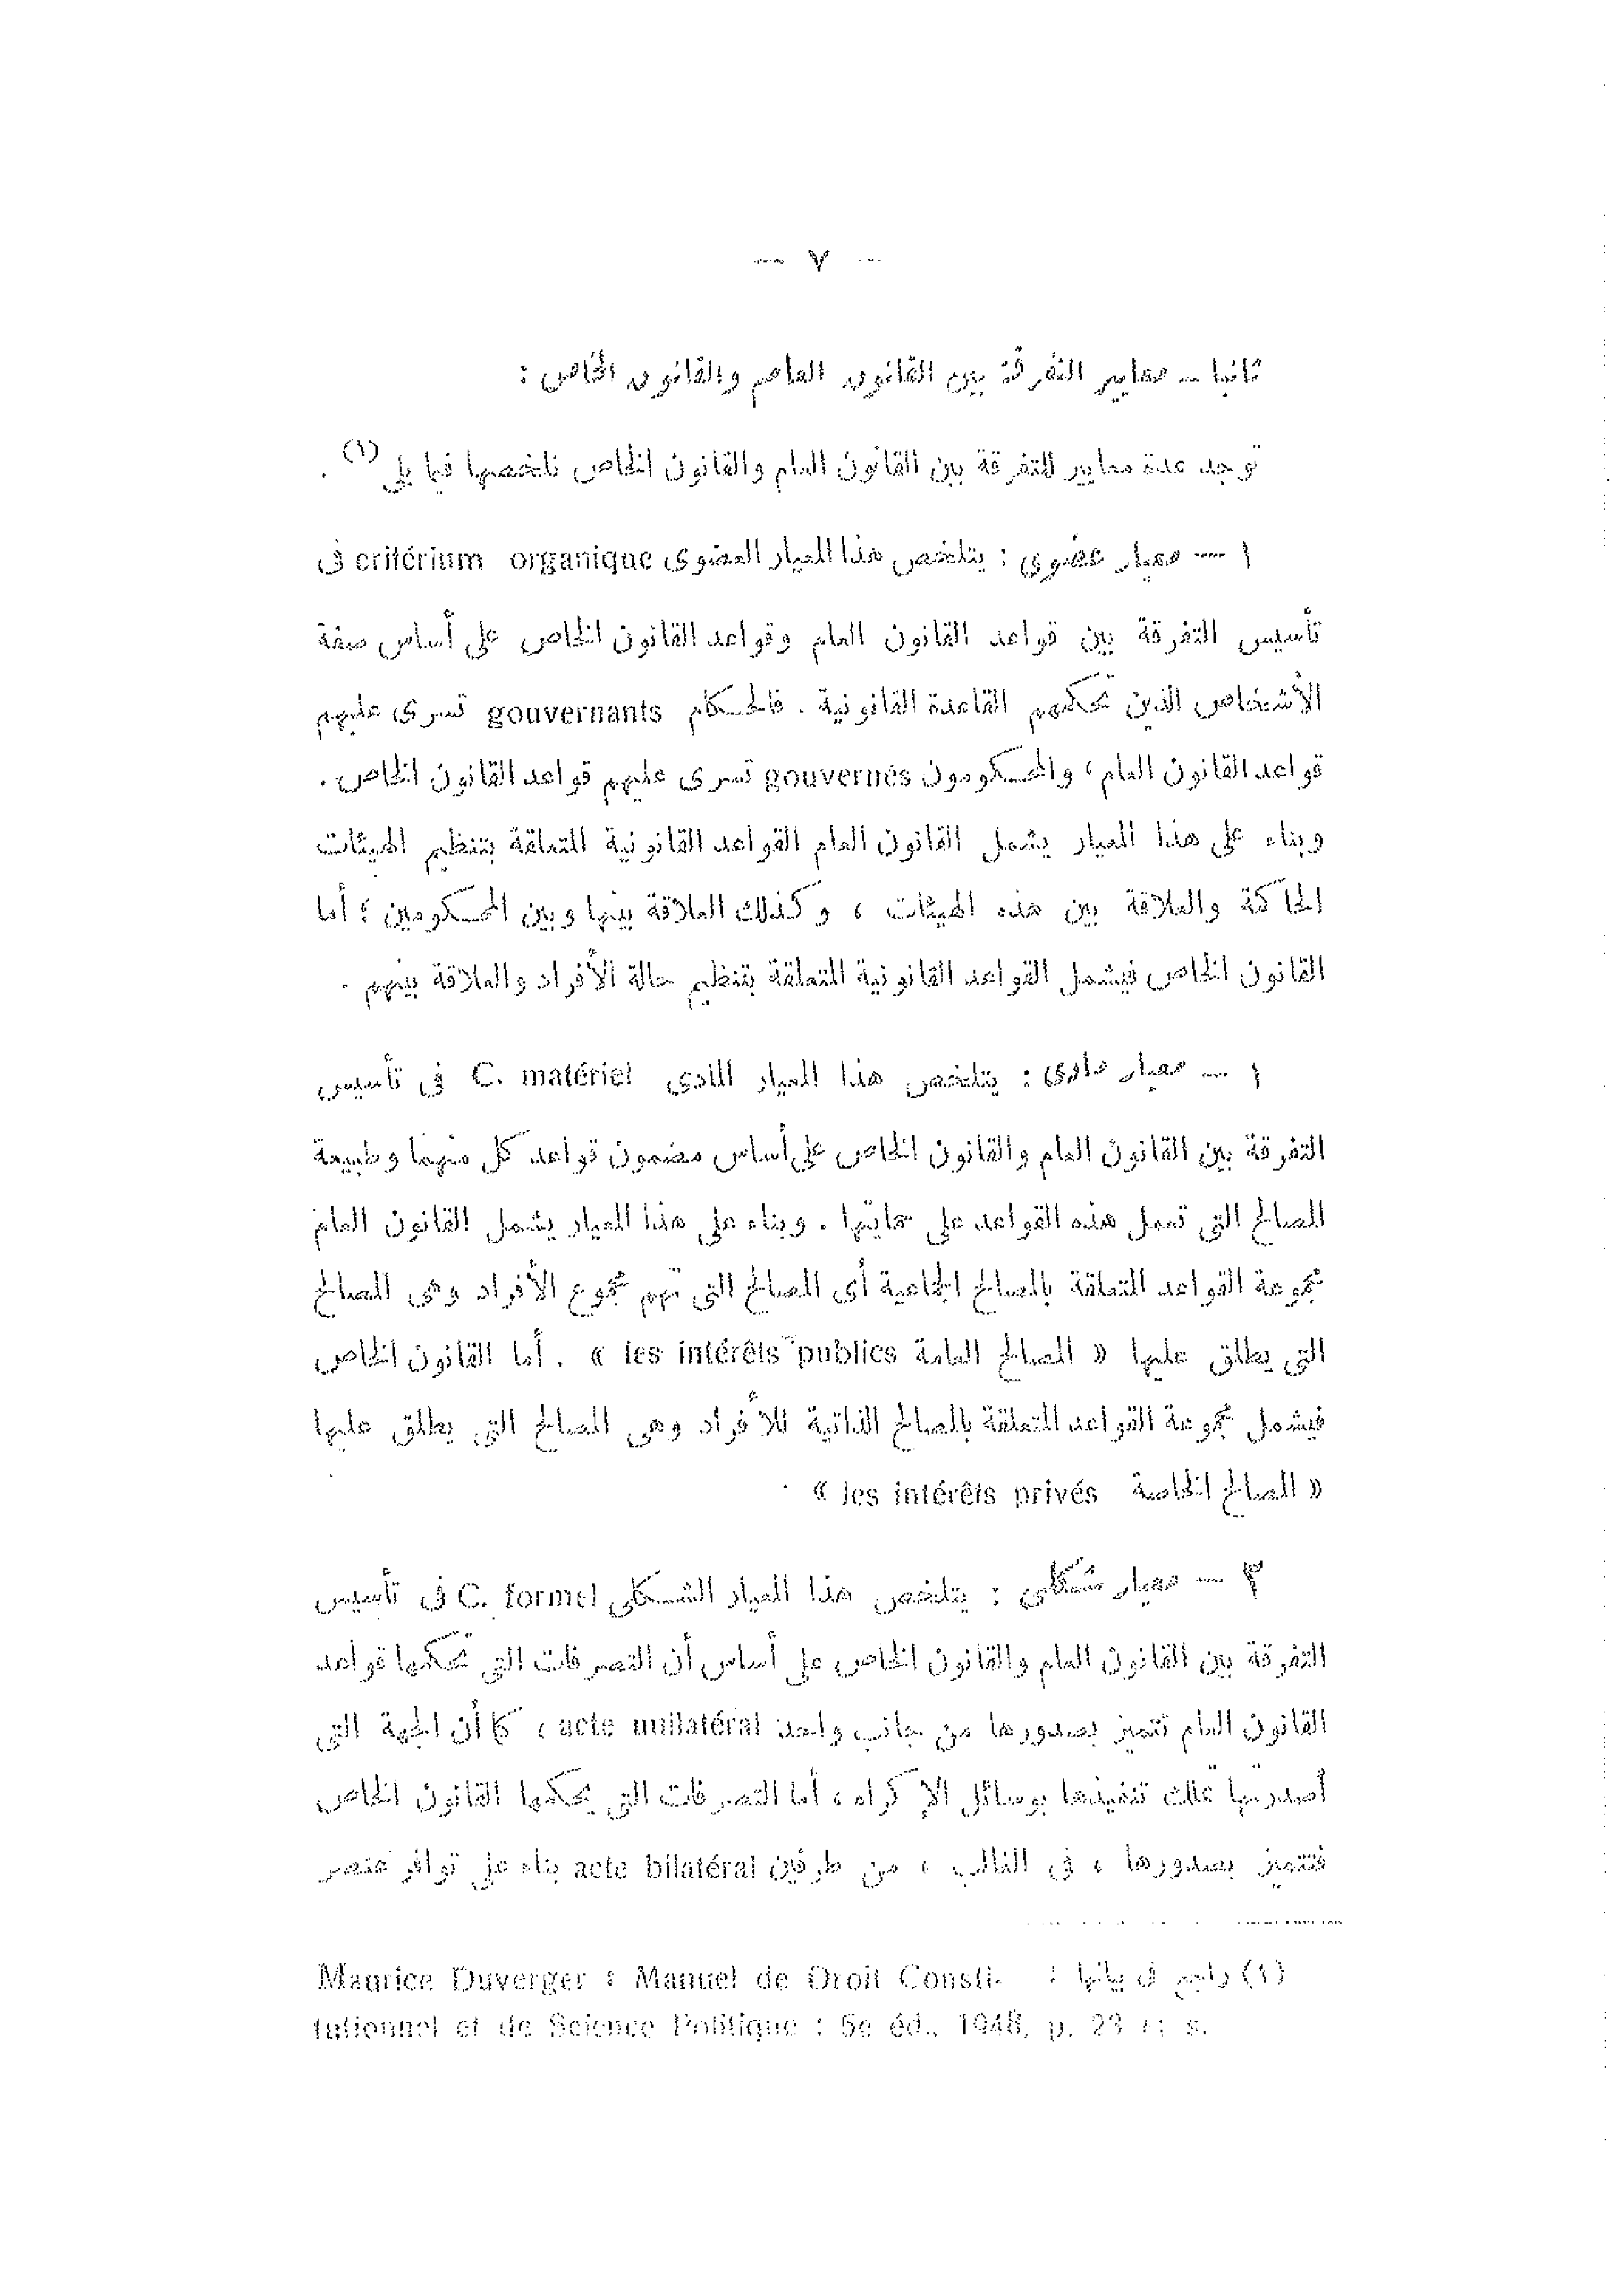 — ٧ —
ثانيا — معايير التفرقة بين القانون العام والقانون الخاص :
توجد عدة معايير للتفرقة بين القانون العام والقانون الخاص نلخصها فيما يلى (١) .
١ — معيار عضوى : يتلخص هذا المعيار العضوى critérium organique فى
تأسيس التفرقة بين قواعد القانون العام وقواعد القانون الخاص على أساس صفة
الأشخاص الذين تحكمهم القاعدة القانونية . فالحكام gouvernants تسرى عليهم
قواعد القانون العام ، والمحكومون gouvernés تسرى عليهم قواعد القانون الخاص .
وبناء على هذا المعيار يشمل القانون العام القواعد القانونية المتعلقة بتنظيم الهيئات
الحاكمة والعلاقة بين هذه الهيئات ، وكذلك العلاقة بينها وبين المحكومين ؛ أما
القانون الخاص فيشمل القواعد القانونية المتعلقة بتنظيم حالة الأفراد والعلاقة بينهم .
١ — معيار مادى : يتلخص هذا المعيار المادى C. matériel فى تأسيس
التفرقة بين القانون العام والقانون الخاص على أساس مضمون قواعد كل منهما وطبيعة
المصالح التى تعمل هذه القواعد على حمايتها . وبناء على هذا المعيار يشمل القانون العام
مجموعة القواعد المتعلقة بالمصالح الجماعية أى المصالح التى تهم مجموع الأفراد وهى المصالح
التى يطلق عليها « المصالح العامة les intérêts publics » . أما القانون الخاص
فيشمل مجموعة القواعد المتعلقة بالمصالح الذاتية للأفراد وهى المصالح التى يطلق عليها
« المصالح الخاصة les intérêts privés » .
٣ — معيار شكلى : يتلخص هذا المعيار الشكلى C. formel فى تأسيس
التفرقة بين القانون العام والقانون الخاص على أساس أن التصرفات التى تحكمها قواعد
القانون العام تتميز بصدورها من جانب واحد acte unilatéral ، كما أن الجهة التى
أصدرتها تملك تنفيذها بوسائل الإكراه ، أما التصرفات التى يحكمها القانون الخاص
فتتميز بصدورها ، فى الغالب ، من طرفين acte bilatéral بناء على توافر عنصر
(١) راجع فى بيانها : Maurice Duverger : Manuel de Droit Consti-
tutionnel et de Science Politique : 5e éd., 1948, p. 23 et s.